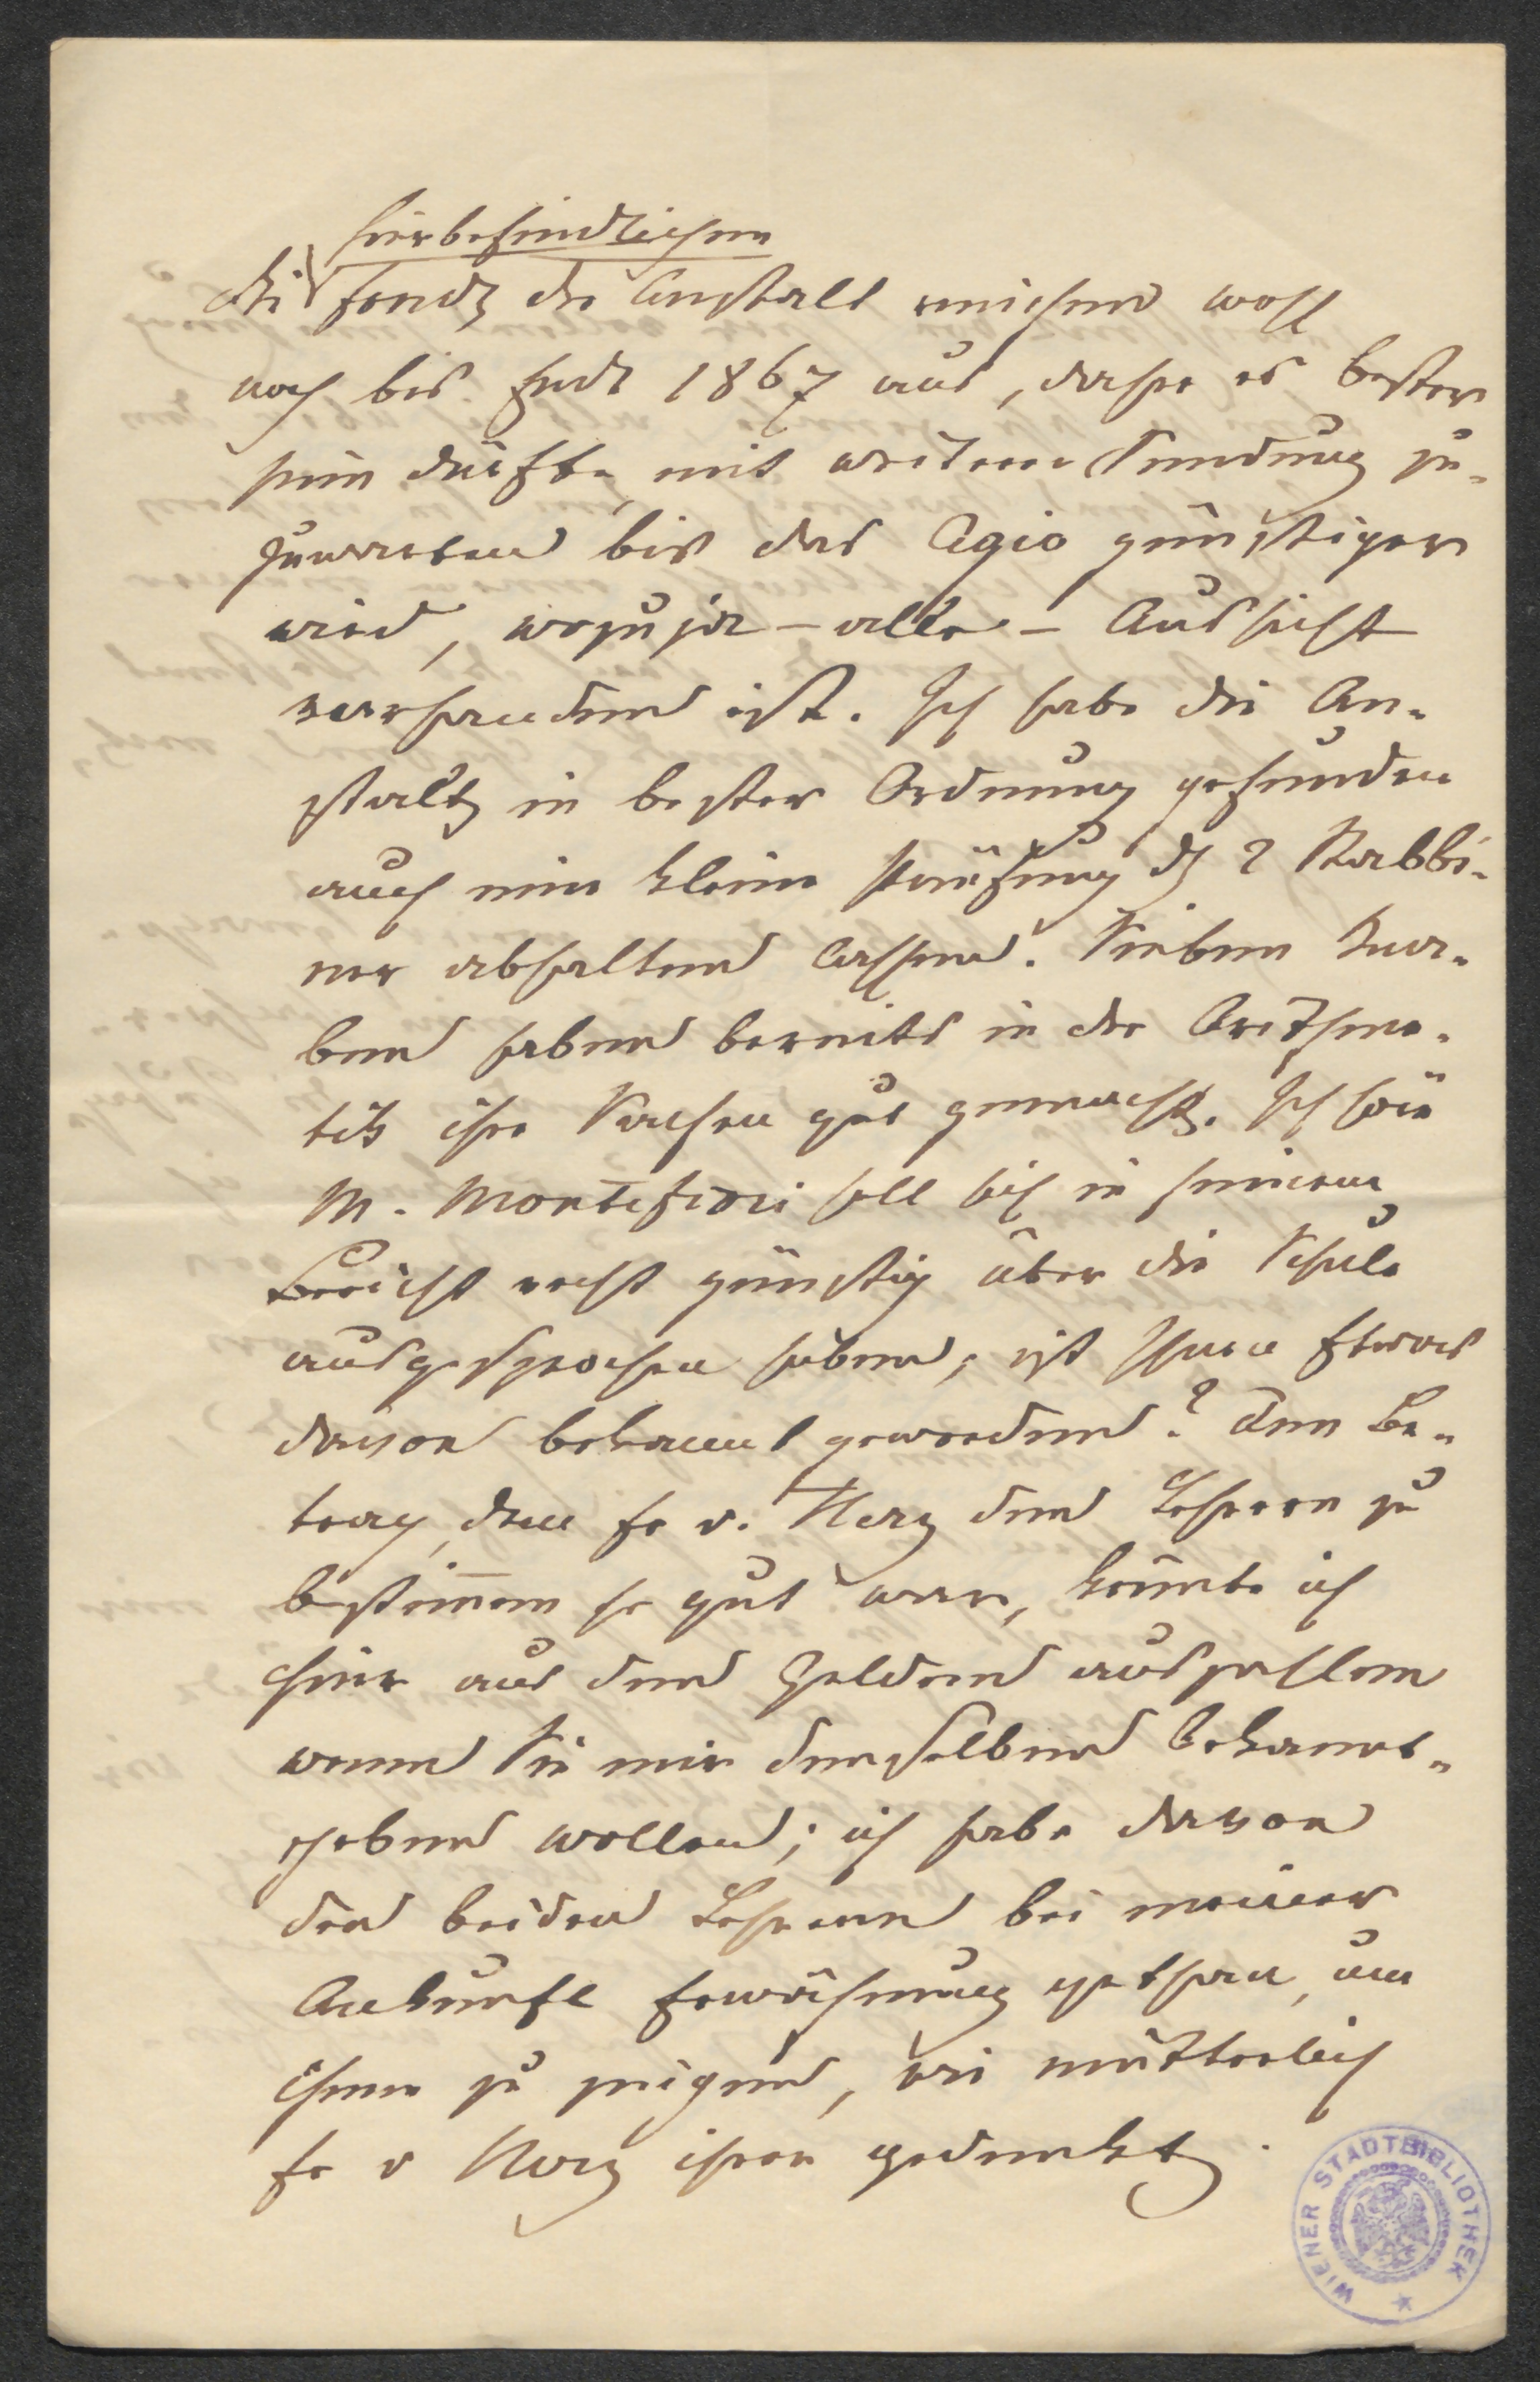 hierbefindlichen
Die Fonds der Anstalt reichen wohl
noch bis Ende 1867 aus, daher es besser
sein dürfte, mit weiterer Sendung zu-
zuwarten bis das Agio günstiger
wird, wozu ja – alle – Aussicht
vorhanden ist. Ich habe die An-
stalt in bester Ordnung gefunden
auch eine kleine Prüfung d 2 Rabbi-
ner abhalten lassen. Sieben Kna-
ben haben bereits in der Arithme-
tik ihre Sachen gut gemacht. Ich höre
M. Montefiori soll sich in seinem
Bericht recht günstig über die Schule
ausgesprochen haben; ist Ihnen Etwas
davon bekannt geworden? Den Be-
trag, den Fr v. Herz den Lehrern zu
bestimmen so gut war, könnte ich
hier aus den Geldern auszahlen
wenn Sie mir denselben bekannt-
geben wollen; ich habe davon
den beiden Lehrern bei meiner
Ankunft Erwähnung gethan, um
ihnen zu zeigen, wie mütterlich
Fr v Herz ihrer gedenkt.
WIENER STADTBIBLIOTHEK